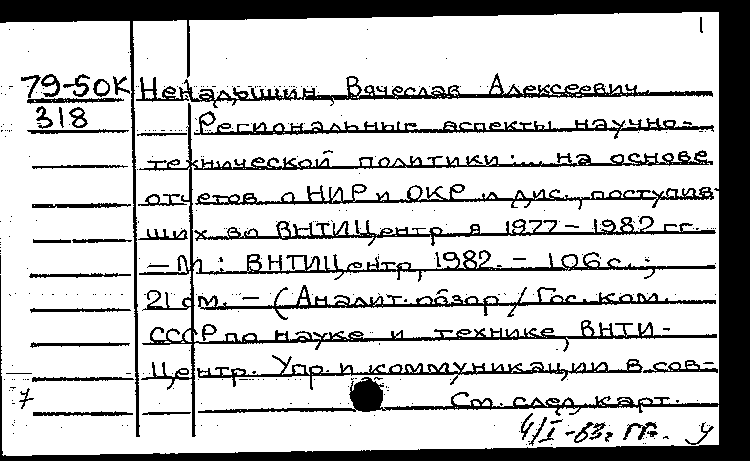 1
79-50К Ненадышин, Вячеслав Алексеевич.
318 Региональные аспекты научно-
технической политики:... на основе
отчетов о НИР и ОКР и дис., поступив-
ших во ВНТИЦентр в 1977-1982 гг.
— М: ВНТИЦентр, 1982. - 106 с.;
21 см. - (Аналит. обзор / Гос. ком.
СССР по науке и технике, ВНТИ-
Центр. Упр. и коммуникации в сов-
7 См. след. карт.
4/I-83г.